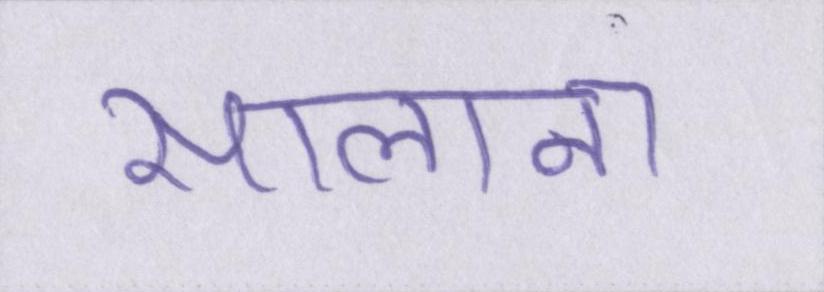 सालाना